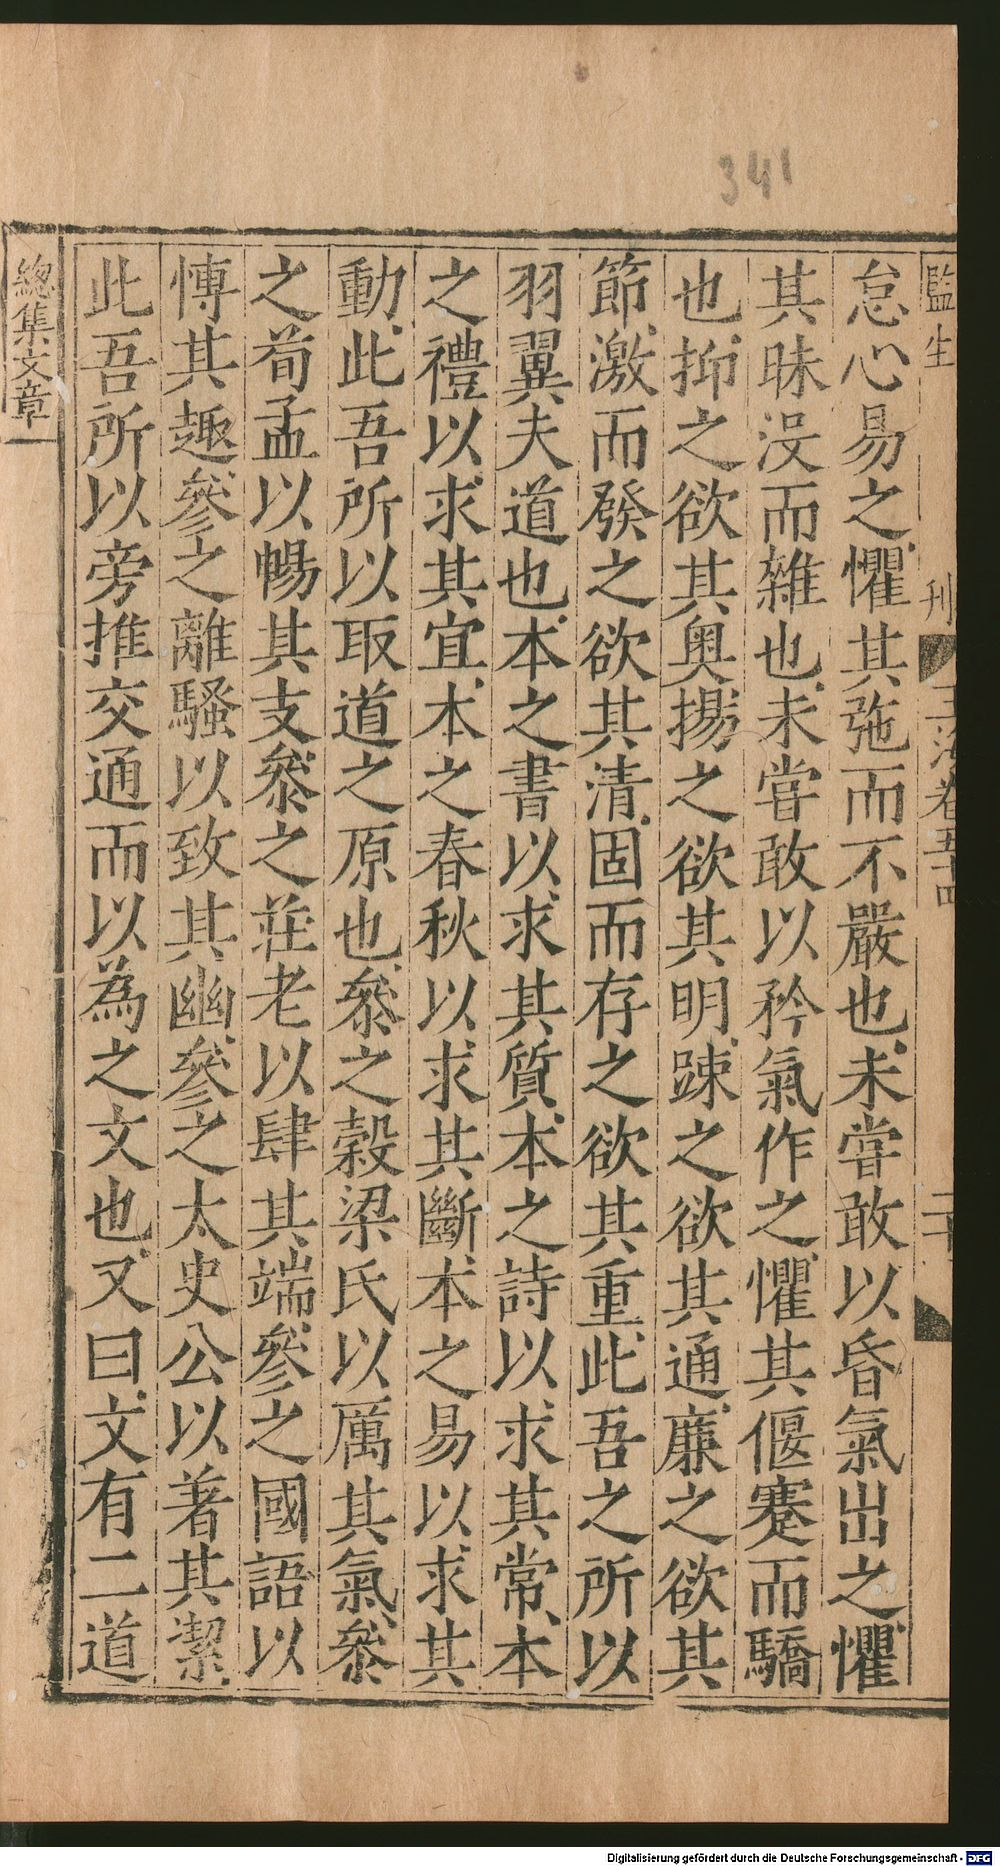 341
監生
刊
玉海卷五十四
二十
怠心易之懼其弛而不嚴也未嘗敢以昏氣出之懼
其昧沒而雜也未嘗敢以矜氣作之懼其偃蹇而驕
也抑之欲其奥揚之欲其明踈之欲其通廉之欲其
節激而發之欲其清固而存之欲其重此吾之所以
羽翼夫道也本之書以求其質本之詩以求其常本
之禮以求其宜本之春秋以求其斷本之易以求其
動此吾所以取道之原也叅之穀梁氏以厲其氣叅
之荀孟以暢其支叅之莊老以肆其端參之國語以
愽其趣參之離騷以致其幽參之太史公以著其潔
此吾所以旁推交通而以為之文也又曰文有二道
總集文章
Digitalisierung gefördert durch die Deutsche Forschungsgemeinschaft - DFG